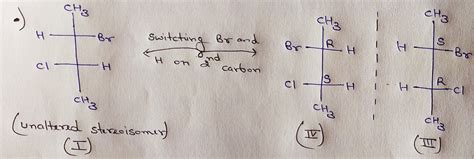 a)
CH3
H Br
Cl H
CH3
(unaltered stereoisomer)
(I)
switching Br and
H on 2nd carbon
CH3
Br R H
Cl S H
CH3
(IV)
CH3
H S Br
H R Cl
CH3
(III)